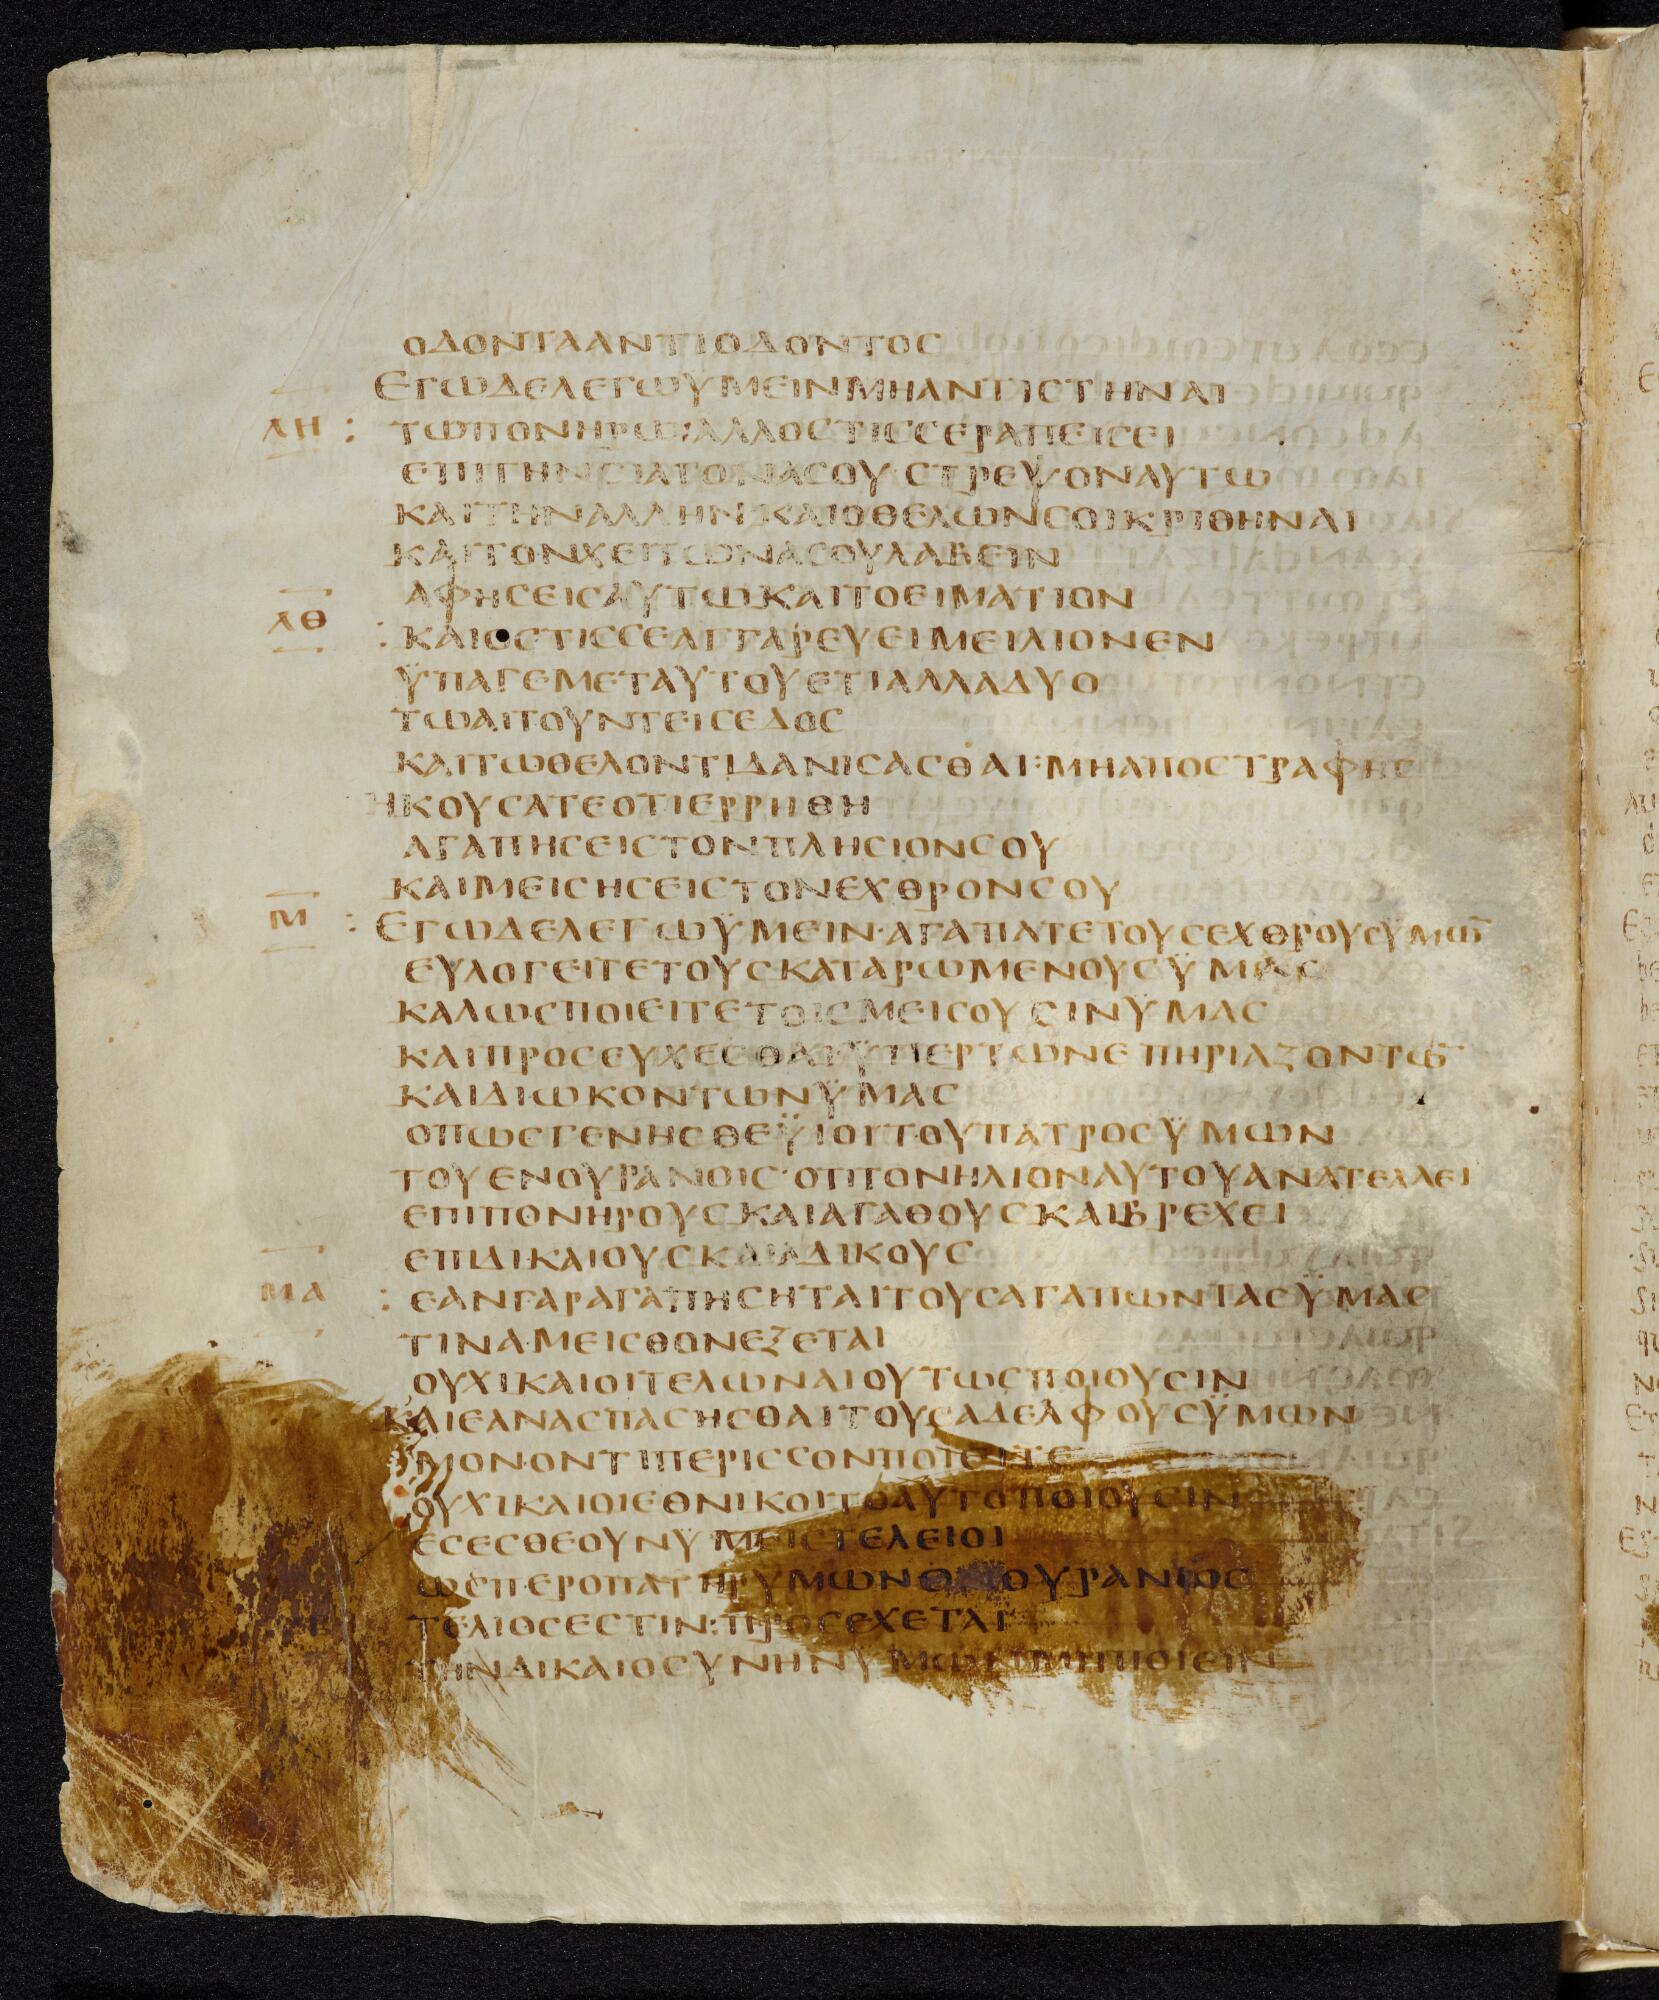 ΟΔΟΝΤΑΑΝΤΙΟΔΟΝΤΟC
ΕΓΩΔΕΛΕΓΩΥΜΕΙΝΜΗΑΝΤΙCΤΗΝΑΙ
ΛΗ : ΤΩΠΟΝΗΡΩ:ΑΛΛΟCΤΙCCΕΡΑΠΕΙCΕΙ
ΕΠΙΤΗΝCΙΑΓΟΝΑCΟΥ·CΤΡΕΨΟΝΑΥΤΩ
ΚΑΙΤΗΝΑΛΛΗΝ·ΚΑΙΟΘΕΛΩΝCΟΙΚΡΙΘΗΝΑΙ
ΚΑΙΤΟΝΧΕΙΤΩΝΑCΟΥΛΑΒΕΙΝ
ΑΦΗCΕΙCΑΥΤΩΚΑΙΤΟΕΙΜΑΤΙΟΝ
ΛΘ : ΚΑΙΟCΤΙCCΕΑΓΓΑΡΕΥΕΙΜΕΙΛΙΟΝΕΝ
ΫΠΑΓΕΜΕΤΑΥΤΟΥΕΤΙΑΛΛΑΔΥΟ
ΤΩΑΙΤΟΥΝΤΕΙCΕΔΟC
ΚΑΙΤΩΘΕΛΟΝΤΙΔΑΝΙCΑCΘΑΙ·ΜΗΑΠΟCΤΡΑΦΗC
ΗΚΟΥCΑΤΕΟΤΙΕΡΡΗΘΗ
ΑΓΑΠΗCΕΙCΤΟΝΠΛΗCΙΟΝCΟΥ
ΚΑΙΜΕΙCΗCΕΙCΤΟΝΕΧΘΡΟΝCΟΥ
Μ : ΕΓΩΔΕΛΕΓΩΫΜΕΙΝ·ΑΓΑΠΑΤΕΤΟΥCΕΧΘΡΟΥCΫΜΩ̅
ΕΥΛΟΓΕΙΤΕΤΟΥCΚΑΤΑΡΩΜΕΝΟΥCΫΜΑC
ΚΑΛΩCΠΟΙΕΙΤΕΤΟΙCΜΕΙCΟΥCΙΝΫΜΑC
ΚΑΙΠΡΟCΕΥΧΕCΘΑΙ·ΫΠΕΡΤΩΝΕΠΗΡΙΑΖΟΝΤΩ̅
ΚΑΙΔΙΩΚΟΝΤΩΝΫΜΑC
ΟΠΩCΓΕΝΗCΘΕΫΙΟΙΤΟΥΠΑΤΡΟCΫΜΩΝ
ΤΟΥΕΝΟΥΡΑΝΟΙC·ΟΤΙΤΟΝΗΛΙΟΝΑΥΤΟΥΑΝΑΤΕΛΛΕΙ
ΕΠΙΠΟΝΗΡΟΥCΚΑΙΑΓΑΘΟΥCΚΑΙΒΡΕΧΕΙ
ΕΠΙΔΙΚΑΙΟΥCΚΑΙΑΔΙΚΟΥC
ΜΑ : ΕΑΝΓΑΡΑΓΑΠΗCΗΤΑΙΤΟΥCΑΓΑΠΩΝΤΑCΫΜΑC
ΤΙΝΑΜΕΙCΘΟΝΕΞΕΤΑΙ
ΟΥΧΙΚΑΙΟΙΤΕΛΩΝΑΙΟΥΤΩCΠΟΙΟΥCΙΝ
ΚΑΙΕΑΝΑCΠΑCΗCΘΑΙΤΟΥCΑΔΕΛΦΟΥCΫΜΩΝ
ΜΟΝΟΝΤΙΠΕΡΙCCΟΝΠΟΙΕΙΤΕ
ΟΥΧΙΚΑΙΟΙΕΘΝΙΚΟΙΤΟΑΥΤΟΠΟΙΟΥCΙΝ
ΕCΕCΘΕΟΥΝΫΜΕΙCΤΕΛΕΙΟΙ
ΩCΠΕΡΟΠΑΤΗΡΫΜΩΝΟΕΝΟΥΡΑΝΙΟC
ΤΕΛΙΟCΕCΤΙΝ:ΠΡΟCΕΧΕΤΑΙ
ΤΗΝΔΙΚΑΙΟCΥΝΗΝΫΜΩΝΜΗΠΟΙΕΙΝ